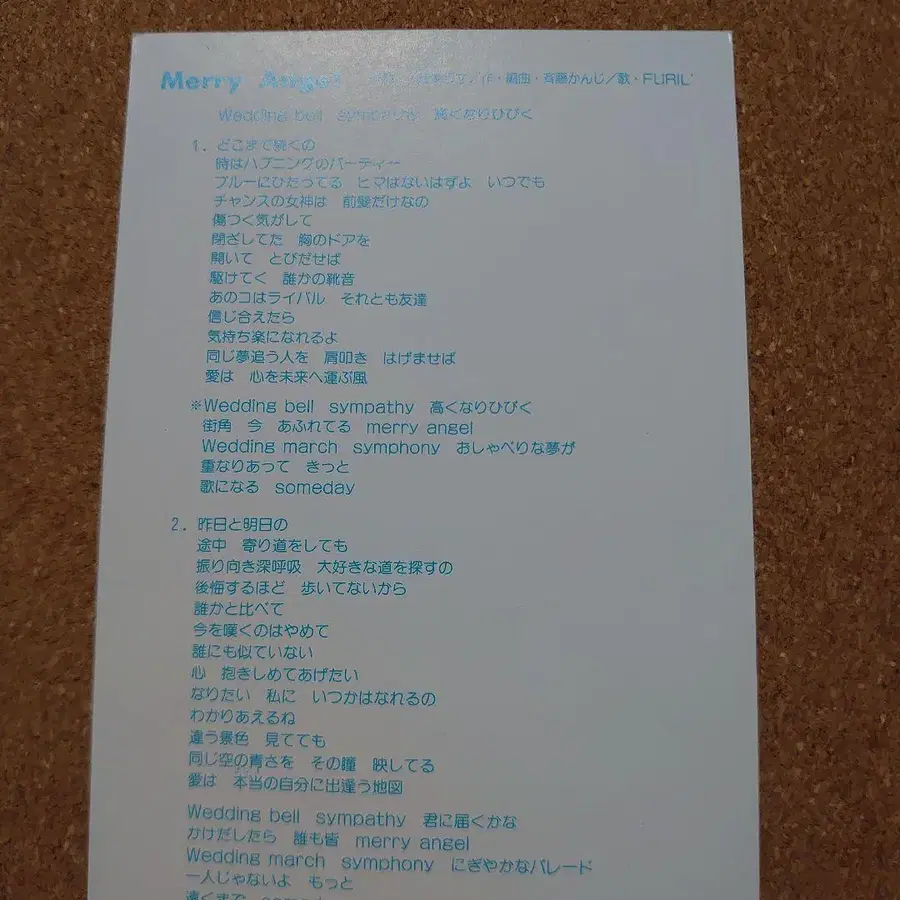 Merry Angel 編曲・斉藤かんじ／歌・FURIL'
Wedding bell　sympathy　高くなりひびく
1. どこまで続くの
時はハプニングのパーティー
ブルーにひたってる　ヒマはないはずよ　いつでも
チャンスの女神は　前髪だけなの
傷つく気がして
閉ざしてた　胸のドアを
開いて　とびだせば
駆けてく　誰かの靴音
あのコはライバル　それとも友達
信じ合えたら
気持ち楽になれるよ
同じ夢追う人を　肩叩き　はげませば
愛は　心を未来へ運ぶ風
※Wedding bell　sympathy　高くなりひびく
街角　今　あふれてる　merry angel
Wedding march　symphony　おしゃべりな夢が
重なりあって　きっと
歌になる　someday
2. 昨日と明日の
途中　寄り道をしても
振り向き深呼吸　大好きな道を探すの
後悔するほど　歩いてないから
誰かと比べて
今を嘆くのはやめて
誰にも似ていない
心　抱きしめてあげたい
なりたい　私に　いつかはなれるの
わかりあえるね
違う景色　見てても
同じ空の青さを　その瞳　映してる
愛は　本当の自分に出逢う地図
Wedding bell　sympathy　君に届くかな
かけだしたら　誰も皆　merry angel
Wedding march　symphony　にぎやかなパレード
一人じゃないよ　もっと
遠くまで